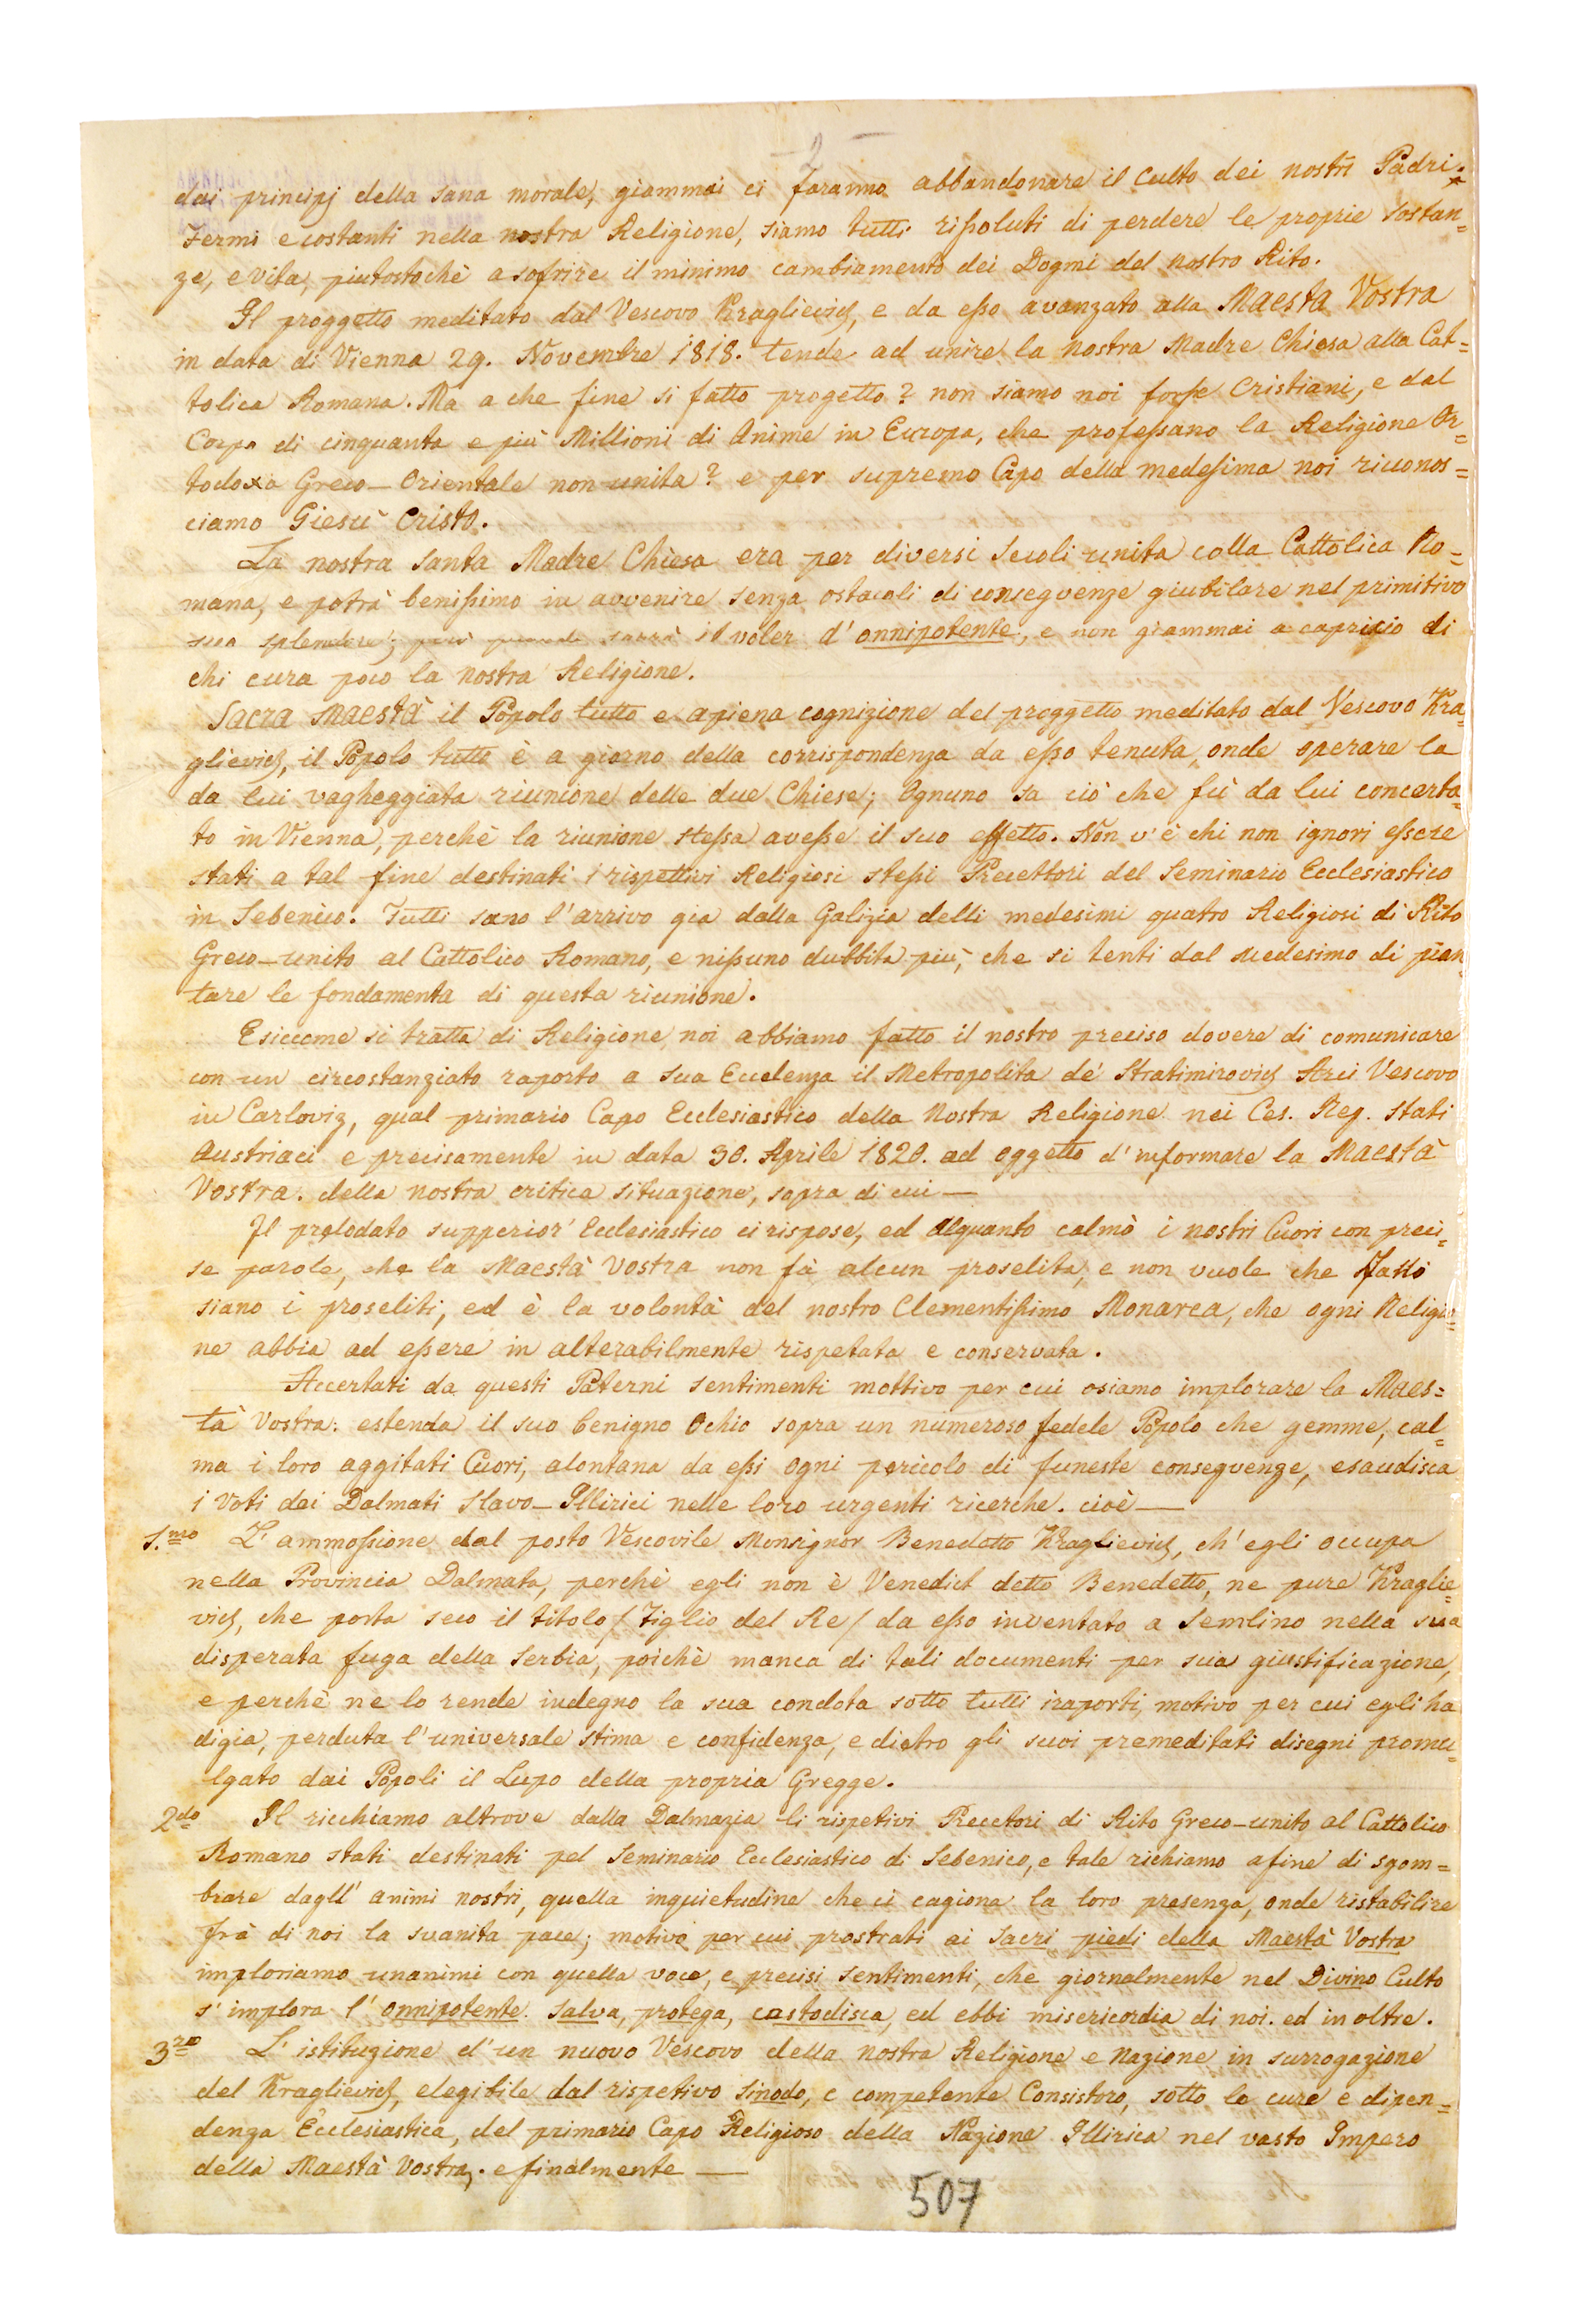 - 2 -
dai principj della sana morale, giammai ci faranno abbandonare il culto dei nostri Padri.
Fermi e costanti nella nostra Religione, siamo tutti rissoluti di perdere le proprie sostan=
ze, e vita, piutostochè a sofrire il minimo cambiamento dei Dogmi del nostro Rito.
Il proggetto meditato dal Vescovo Kraglievich, e da esso avanzato alla Maestà Vostra
in data di Vienna 29. Novembre 1818. tende ad unire la nostra Madre Chiesa alla Cat=
tolica Romana. Ma a che fine si fatto progetto? non siamo noi forse Cristiani, e dal
Corpo di cinquanta e più Millioni di Anime in Europa, che professano la Religione Or=
todoxa Greco-Orientale non-unita? e per supremo Capo della medesima noi riconos=
ciamo Giesù Cristo.
La nostra Santa Madre Chiesa era per diversi secoli unita colla Cattolica Ro=
mana, e potrà benissimo in avvenire senza ostacoli di conseqvenze giubilare nel primitivo
suo splendore; però quando sarrà il voler d'onnipotente, e non giammai a capricio di
chi cura poco la nostra Religione.
Sacra Maestà il Popolo tutto e apiena cognizione del proggetto meditato dal Vescovo Kra=
glievich, il Popolo tutto è a giorno della corrispondenza da esso tenuta, onde operare la
da lui vagheggiata riunione delle due Chiese; Ognuno sa ciò che fù da lui concerta=
to in Vienna, perchè la riunione stessa avesse il suo effetto. Non v'è chi non ignori essere
stati a tal fine destinati i rispettivi Religiosi stessi Precettori del Seminario Ecclesiastico
in Sebenico. Tutti sano l'arrivo gia dalla Galizia delli medesimi quatro Religiosi di Rito
Greco-unito al Cattolico Romano, e nissuno dubbita più, che si tenti dal medesimo di pian=
tare le fondamenta di questa riunione.
Esiccome si tratta di Religione noi abbiamo fatto il nostro preciso dovere di comunicare
con un circostanziato raporto a sua Eccelenza il Metropolita de' Stratimirovich Arci Vescovo
in Carloviz, qual primario Capo Ecclesiastico della Nostra Religione nei Ces. Reg. Stati
Austriaci e precisamente in data 30. Aprile 1820. ad oggetto d'informare la Maestà
Vostra. della nostra critica situazione, sopra di cui —
Il prelodato supperior' Ecclesiastico ci rispose, ed alquanto calmò i nostri Cuori con preci=
se parole, che la Maestà Vostra non fà alcun proselita, e non vuole che fatti
siano i proseliti, ed è la volontà del nostro Clementissimo Monarca, che ogni Religio=
ne abbia ad essere in alterabilmente rispetata e conservata.
Accertati da questi Paterni sentimenti mottivo per cui osiamo implorare la Maes=
tà Vostra: estenda il suo benigno Ochio sopra un numeroso fedele Popolo che gemme, cal=
ma i loro aggitati Cuori, alontana da essi ogni pericolo di funeste conseqvenze, esaudisca
i Voti dei Dalmati Slavo-Illirici nelle loro urgenti ricerche. cioè —
1.mo L'ammossione dal posto Vescovile Monsignor Benedetto Kraglievich, ch'egli occupa
nella Provincia Dalmata, perchè egli non è Venedict detto Benedetto, ne pure Kraglie=
vich, che porta seco il titolo / Figlio del Re / da esso inventato a Semlino nella sua
disperata fuga della Serbia, poichè manca di tali documenti per sua giustificazione,
e perchè ne lo rende indegno la sua condota sotto tutti i raporti, motivo per cui egli ha
digia, perduta l'universale stima e confidenza, e dietro gli suoi premeditati disegni promu=
lgato dai Popoli il Lupo della propria Gregge.
2do Il ricchiamo altrove dalla Dalmazia li rispetivi Precetori di Rito Greco-unito al Cattolico
Romano stati destinati pel Seminario Ecclesiastico di Sebenico, e tale richiamo afine di sgom=
brare dagll' animi nostri, quella inquietudine che ci cagiona la loro presenza, onde ristabilire
frà di noi la svanita pace; motivo per cui prostrati ai sacri piedi della Maestà Vostra
imploriamo unanimi con quella voce, e precisi sentimenti, che giornalmente nel Divino Culto
s'implora l'onnipotente. salva, protega, castodisca, ed ebbi misericordia di noi. ed in oltre.
3zo L'istituzione d'un nuovo Vescovo della nostra Religione e Nazione in surrogazione
del Kraglievich, elegibile dal rispetivo Sinodo, e competente Consistoro, sotto le cure e dipen=
denza Ecclesiastica, del primario Capo Religioso della Nazione Illirica nel vasto Impero
della Maestà Vostra. e finalmente —
507